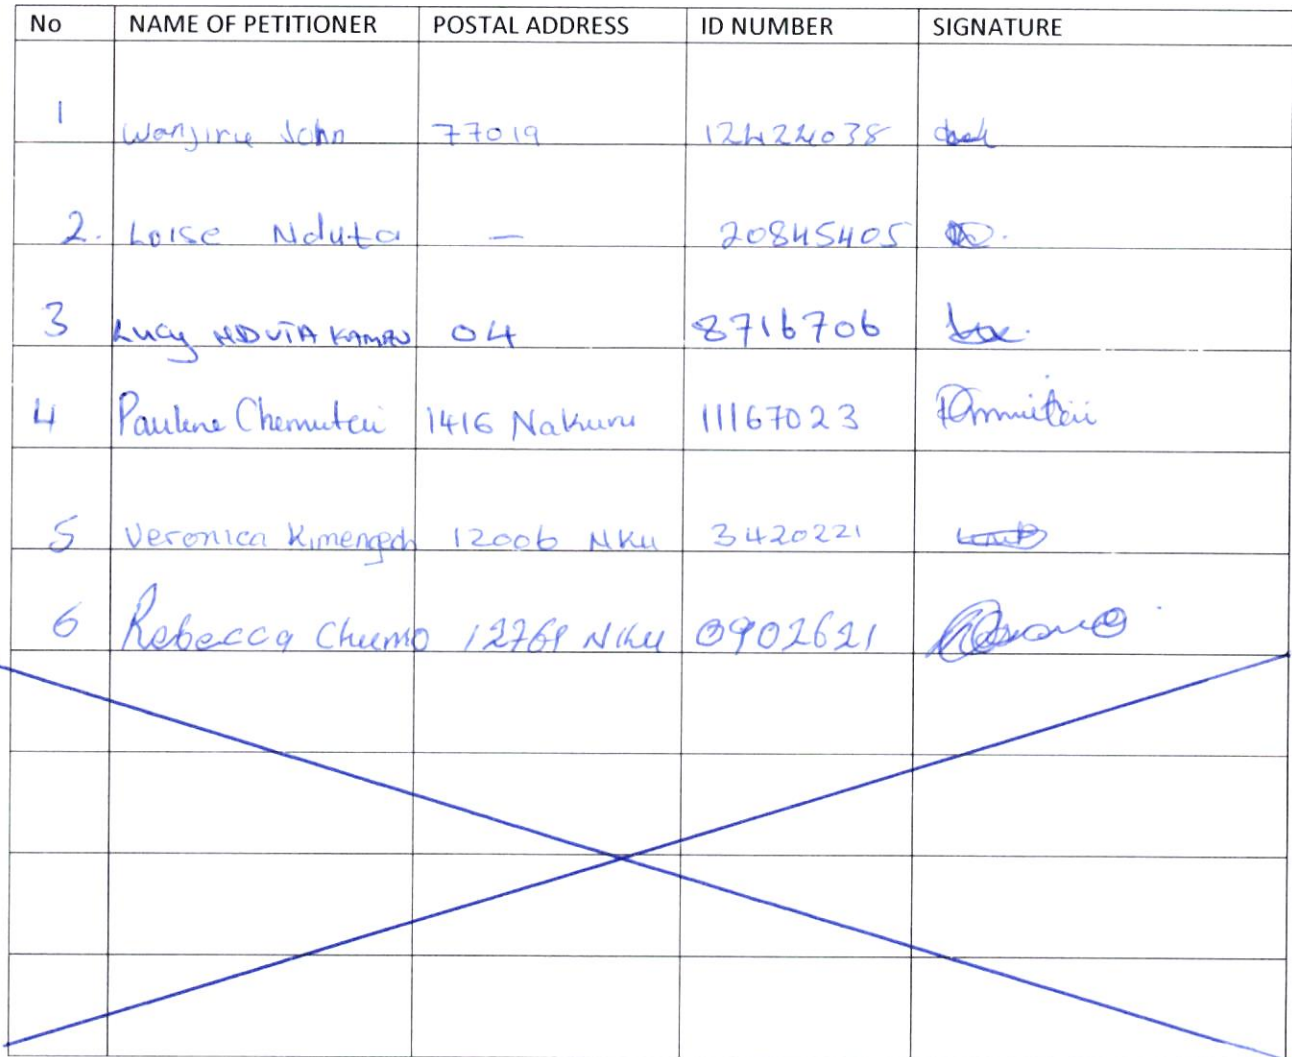 No NAME OF PETITIONER POSTAL ADDRESS ID NUMBER SIGNATURE
1 Wanjiru John 77019 12424038
2. Loise Nduta — 20845405
3 Lucy NDUTA KAMAU 04 8716706
4 Paulene Chemutai 1416 Nakuru 11167023
5 Veronica Kimengech 12006 NKU 3420221
6 Rebecca Chumo 12761 NKU 0902621